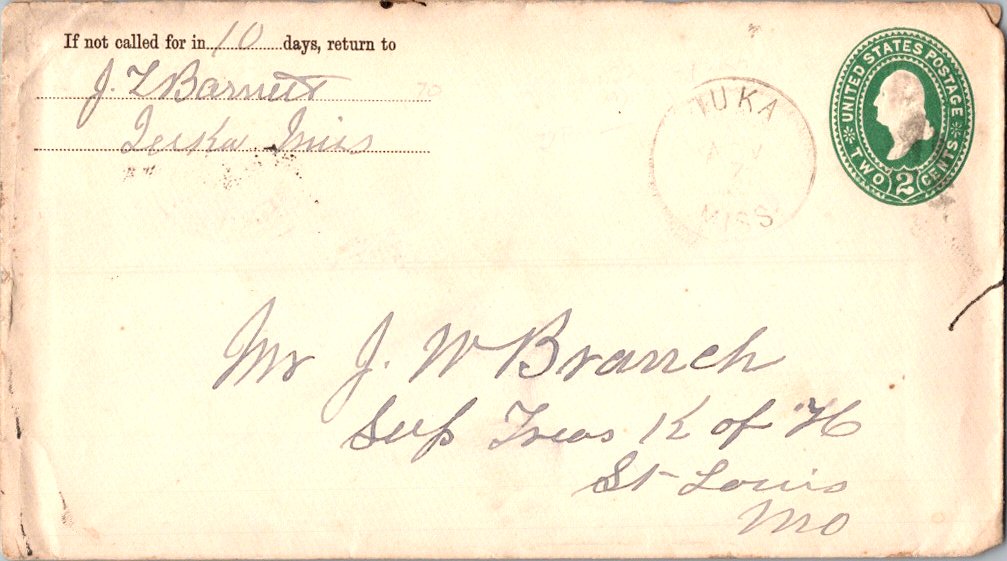 If not called for in 10 days, return to
J. Z Barnett
Iuka Miss
IUKA
MISS
UNITED STATES POSTAGE
TWO 2 CENTS
Mr J. W Branch
Sup Treas K of H
St Louis
Mo